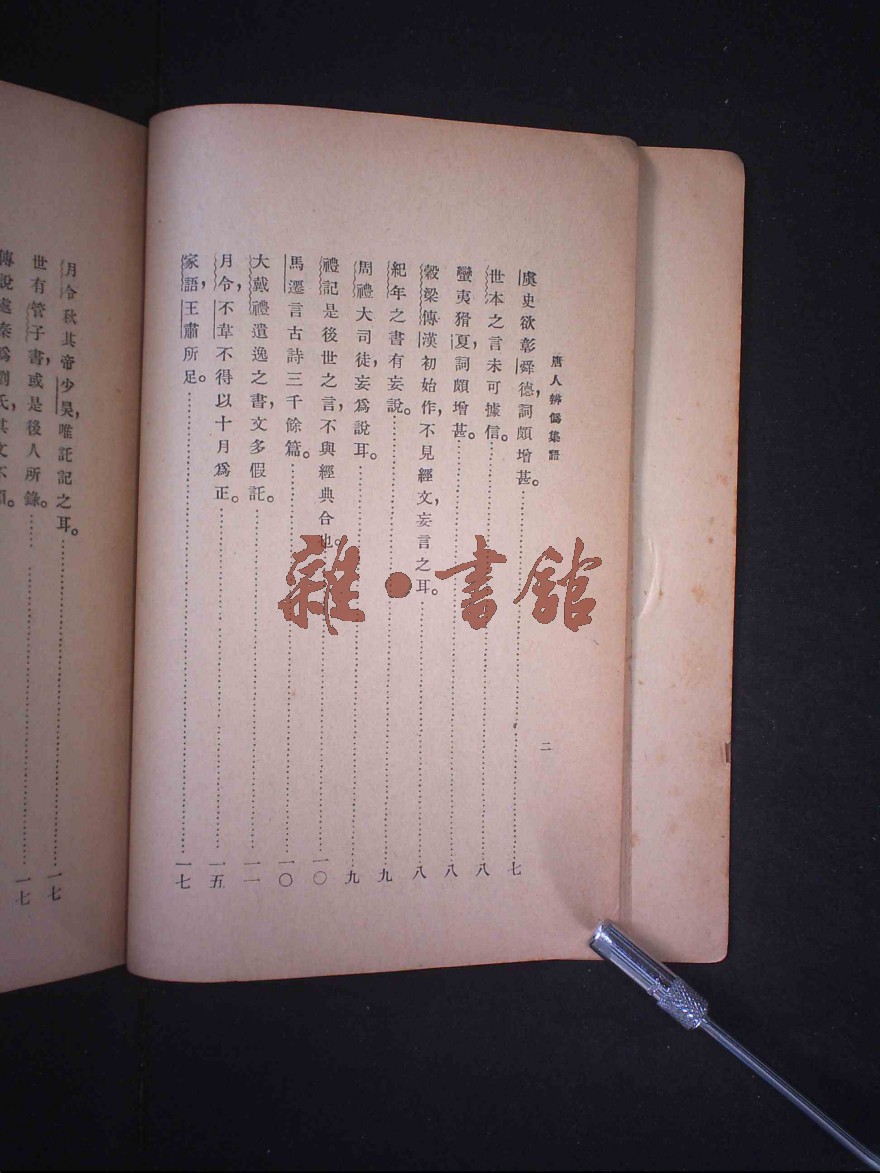 唐人辨僞集語
二
虞史欲彰舜德，詞頗增甚。……七
世本之言未可據信。……八
蠻夷猾夏，詞頗增甚。……八
穀梁傳漢初始作，不見經文，妄言之耳。……八
紀年之書有妄說。……九
周禮大司徒，妄爲說耳。……九
禮記是後世之言，不與經典合也。……一〇
馬遷言古詩三千餘篇。……一〇
大戴禮遺逸之書，文多假託。……一一
月令，不韋不得以十月爲正。……一五
家語，王肅所足。……一七
月令秋其帝少昊，唯託記之耳。……一七
世有管子書，或是後人所錄。……一七
傳說處秦爲劉氏，其文不
雜·書館